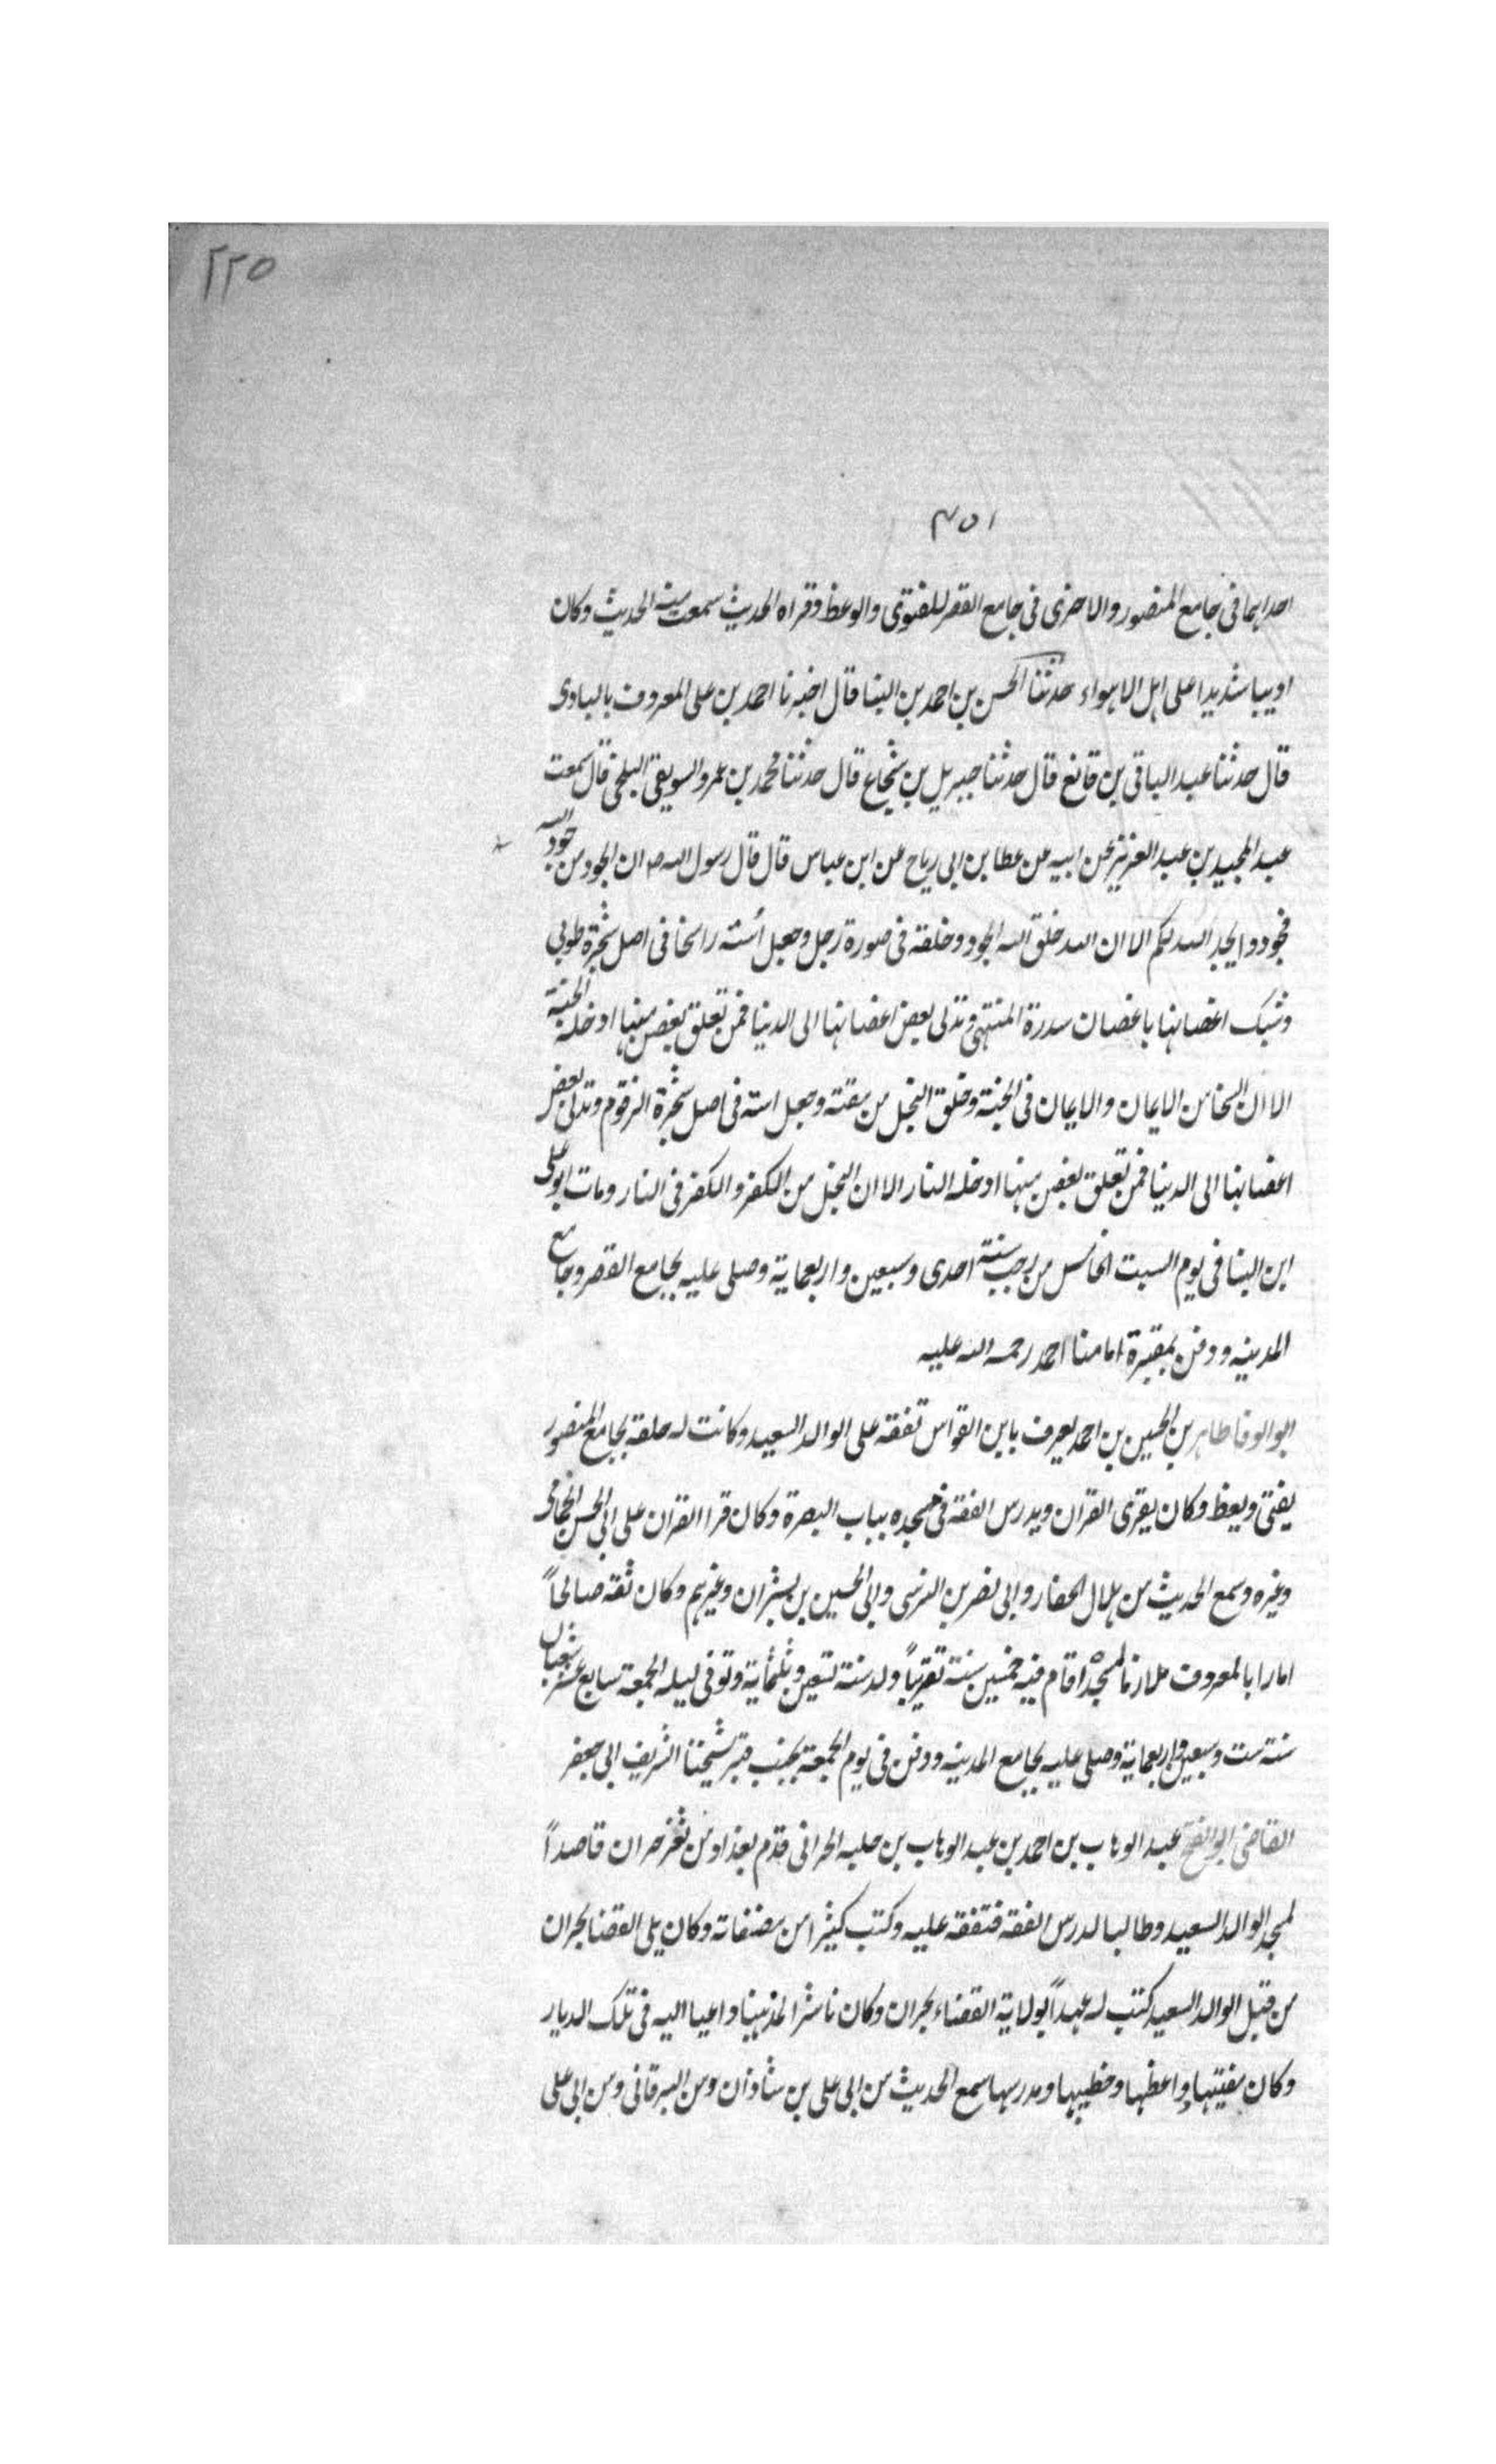 ٢٢٥
٤٥١
احداهما فى جامع المنصور والاخرى فى جامع القصر للفتوى والوعظ وقراه الحديث سمعت منه الحديث وكان
اديبا شديدا على اهل الاهواء حدثنا الحسن بن احمد بن البنا قال اخبرنا احمد بن على المعروف بالبادى
قال حدثنا عبد الباقى بن قانع قال حدثنا جبريل بن شجاع قال حدثنا محمد بن عمرو السويقى البلخى قال سمعت
عبد المجيد بن عبد العزيز عن ابيه عن عطا بن ابى رباح عن ابن عباس قال قال رسول الله ص ان الجود من جود الله
فجودوا يجد الله لكم الا ان الله خلق الله الجود وخلقه فى صورة رجل وجعل أسه راسخا فى اصل شجرة طوبى
وشبك اغصانها باغصان سدرة المنتهى وتدلى بعض اغصانها الى الدنيا فمن تعلق بغصن منها ادخله الجنة
الا ان السخا من الايمان والايمان فى الجنة وخلق البخل من مقته وجعل اسه فى اصل شجرة الزقوم وتدلى بعض
اغصانها الى الدنيا فمن تعلق بغصن منها ادخله النار الا ان البخل من الكفر والكفر فى النار ومات ابو على
ابن البنا فى يوم السبت الخامس من رجب سنة احدى وسبعين واربعماية وصلى عليه بجامع القصر وجامع
المدينه ودفن بمقبرة امامنا احمد رحمه الله عليه
ابو الوفا طاهر بن الحسين بن احمد يعرف باين القواس تفقه على الوالد السعيد وكانت له حلقه بجامع المنصور
يفتى ويعظ وكان يقرى القران ويدرس الفقه فى مسجده بباب البصرة وكان قرا القران على ابى الحسن الحمامى
وغيره وسمع الحديث من هلال الحفار وابى نصر بن النرسى وابى الحسين بن بشران وغيرهم وكان ثقه صالحاً
امارا بالمعروف ملازما لمسجده اقام فيه خمسين سنة تقريباً ولد سنة تسعين وثلثماية وتوفى ليله الجمعة سابع عشر شعبان
سنة ست وسبعين واربعماية وصلى عليه بجامع المدينه ودفن فى يوم الجمعة بجنب قبر شيخنا الشريف ابى جعفر
القاضى ابو الفتح عبد الوهاب بن احمد بن عبد الوهاب بن جلبه الحرانى قدم بغداد من ثغر حران قاصداً
لمجد الوالد السعيد وطالبا لدرس الفقه فتفقه عليه وكتب كثيرا من مصنفاته وكان يلى القضا بحران
من قبل الوالد السعيد كتب له عهداً بولاية القضاء بحران وكان ناشرا لمذهبنا داعيا اليه فى تلك الديار
وكان مفتيها وواعظها وخطيبها ومدرسها سمع الحديث من ابى على بن شاذان ومن البرقانى ومن ابى على